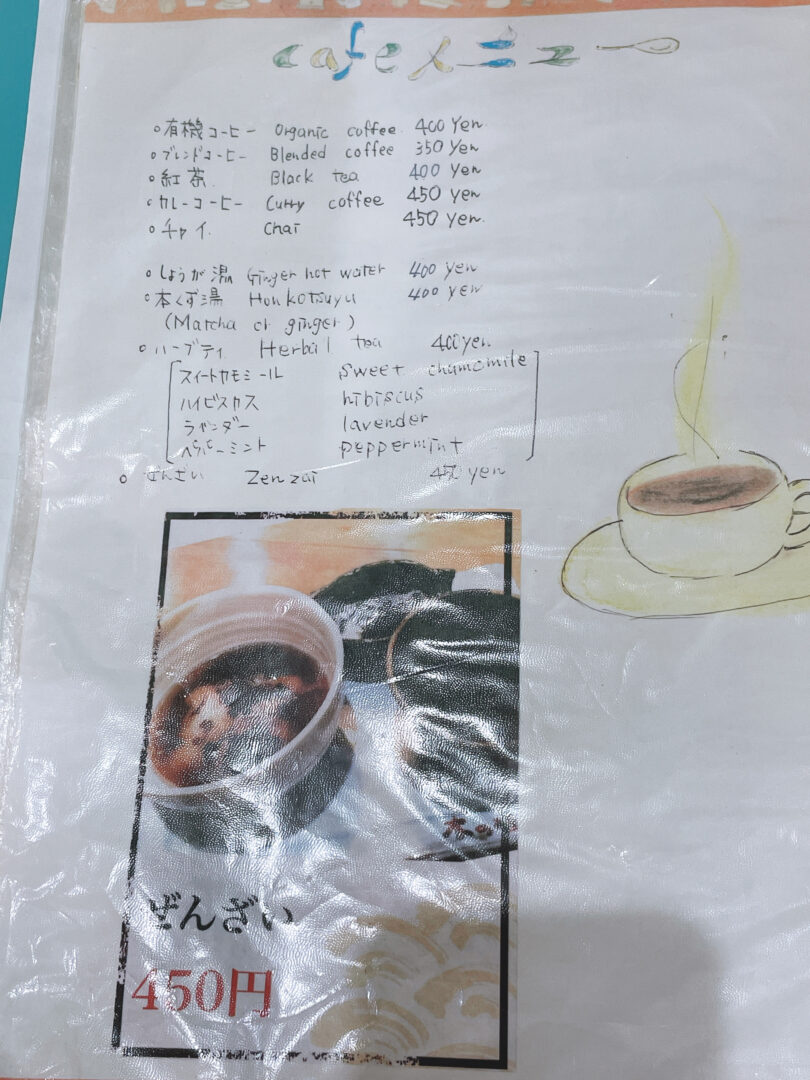 cafe メニュー
○有機コーヒー Organic coffee 400 Yen
○ブレンドコーヒー Blended coffee 350 Yen
○紅茶 Black tea 400 Yen
○カレーコーヒー Curry coffee 450 yen
○チャイ chai 450 yen
○しょうが湯 Ginger hot water 400 yen
○本くず湯 Honkotsuyu 400 yen
(Matcha or ginger)
○ハーブティ Herbal tea 400 yen
スイートカモミール sweet chamomile
ハイビスカス hibiscus
ラベンダー lavender
ペパーミント peppermint
○ぜんざい Zenzai 450 yen
ぜんざい
450円